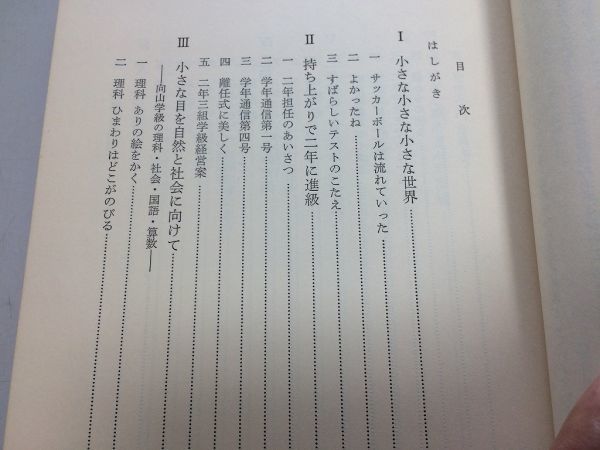 目次
はしがき
Ⅰ 小さな小さな小さな世界
一 サッカーボールは流れていった
二 よかったね
三 すばらしいテストのこたえ
Ⅱ 持ち上がりで二年に進級
一 二年担任のあいさつ
二 学年通信第一号
三 学年通信第四号
四 離任式に美しく
五 二年三組学級経営案
Ⅲ 小さな目を自然と社会に向けて
――向山学級の理科・社会・国語・算数――
一 理科 ありの絵をかく
二 理科 ひまわりはどこがのびる